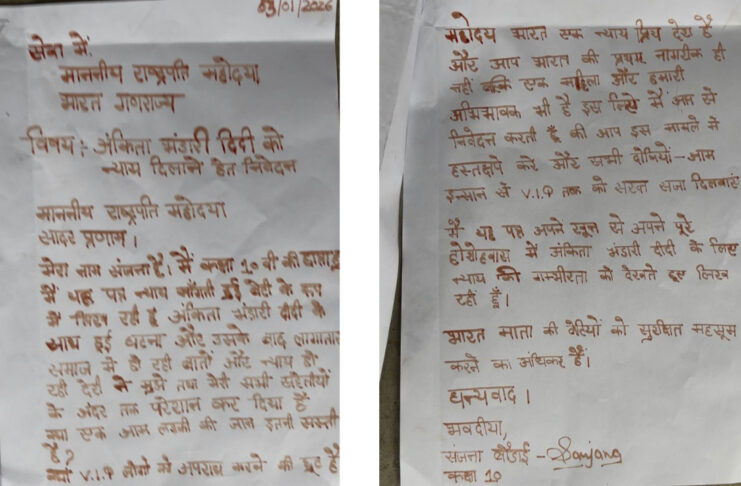 03/01/2026
सेवा में,
माननीय राष्ट्रपति महोदया
भारत गणराज्य
विषय: अंकिता भंडारी दिदी को
न्याय दिलाने हेतु निवेदन
माननीय राष्ट्रपति महोदया
सादर प्रणाम।
मेरा नाम संजना है। मैं कक्षा 10 वी की छात्रा हूँ
मैं यह पत्र न्याय माँगती हुई बेटी के रूप
में लिख रही हूँ अंकिता भंडारी दीदी के
साथ हुई घटना और उसके बाद लगातार
समाज में हो रही बातों और न्याय में हो
रही देरी ने मुझे तथा मेरी सभी सहेलीयों
के अंदर तक परेशान कर दिया है
क्या एक आम लडकी की जान इतनी सस्ती
है?
क्या V.I.P लोगो को अपराध करने की छूट है
महोदय भारत एक न्याय प्रिय देश है
और आप भारत की प्रथम नागरीक ही
नहीं बल्कि एक महिला और हमारी
अभिभावक भी है इस लिये मैं आप से
निवेदन करती हूँ की आप इस मामले मे
हस्तक्षेप करे और सभी दोषियों-आम
इन्सान से V.I.P तक को सख्त सजा दिलवाएं
मैं यह पत्र अपने खून से अपने पूरे
होशोहवास में अंकिता भंडारी दीदी के लिए
न्याय की गम्भीरता को देखते हुए लिख
रही हूँ।
भारत माता की बेटियों को सुरक्षित महसूस
करने का अधिकार है।
धन्यवाद।
भवदीया,
संजना - Sanjana
कक्षा 10